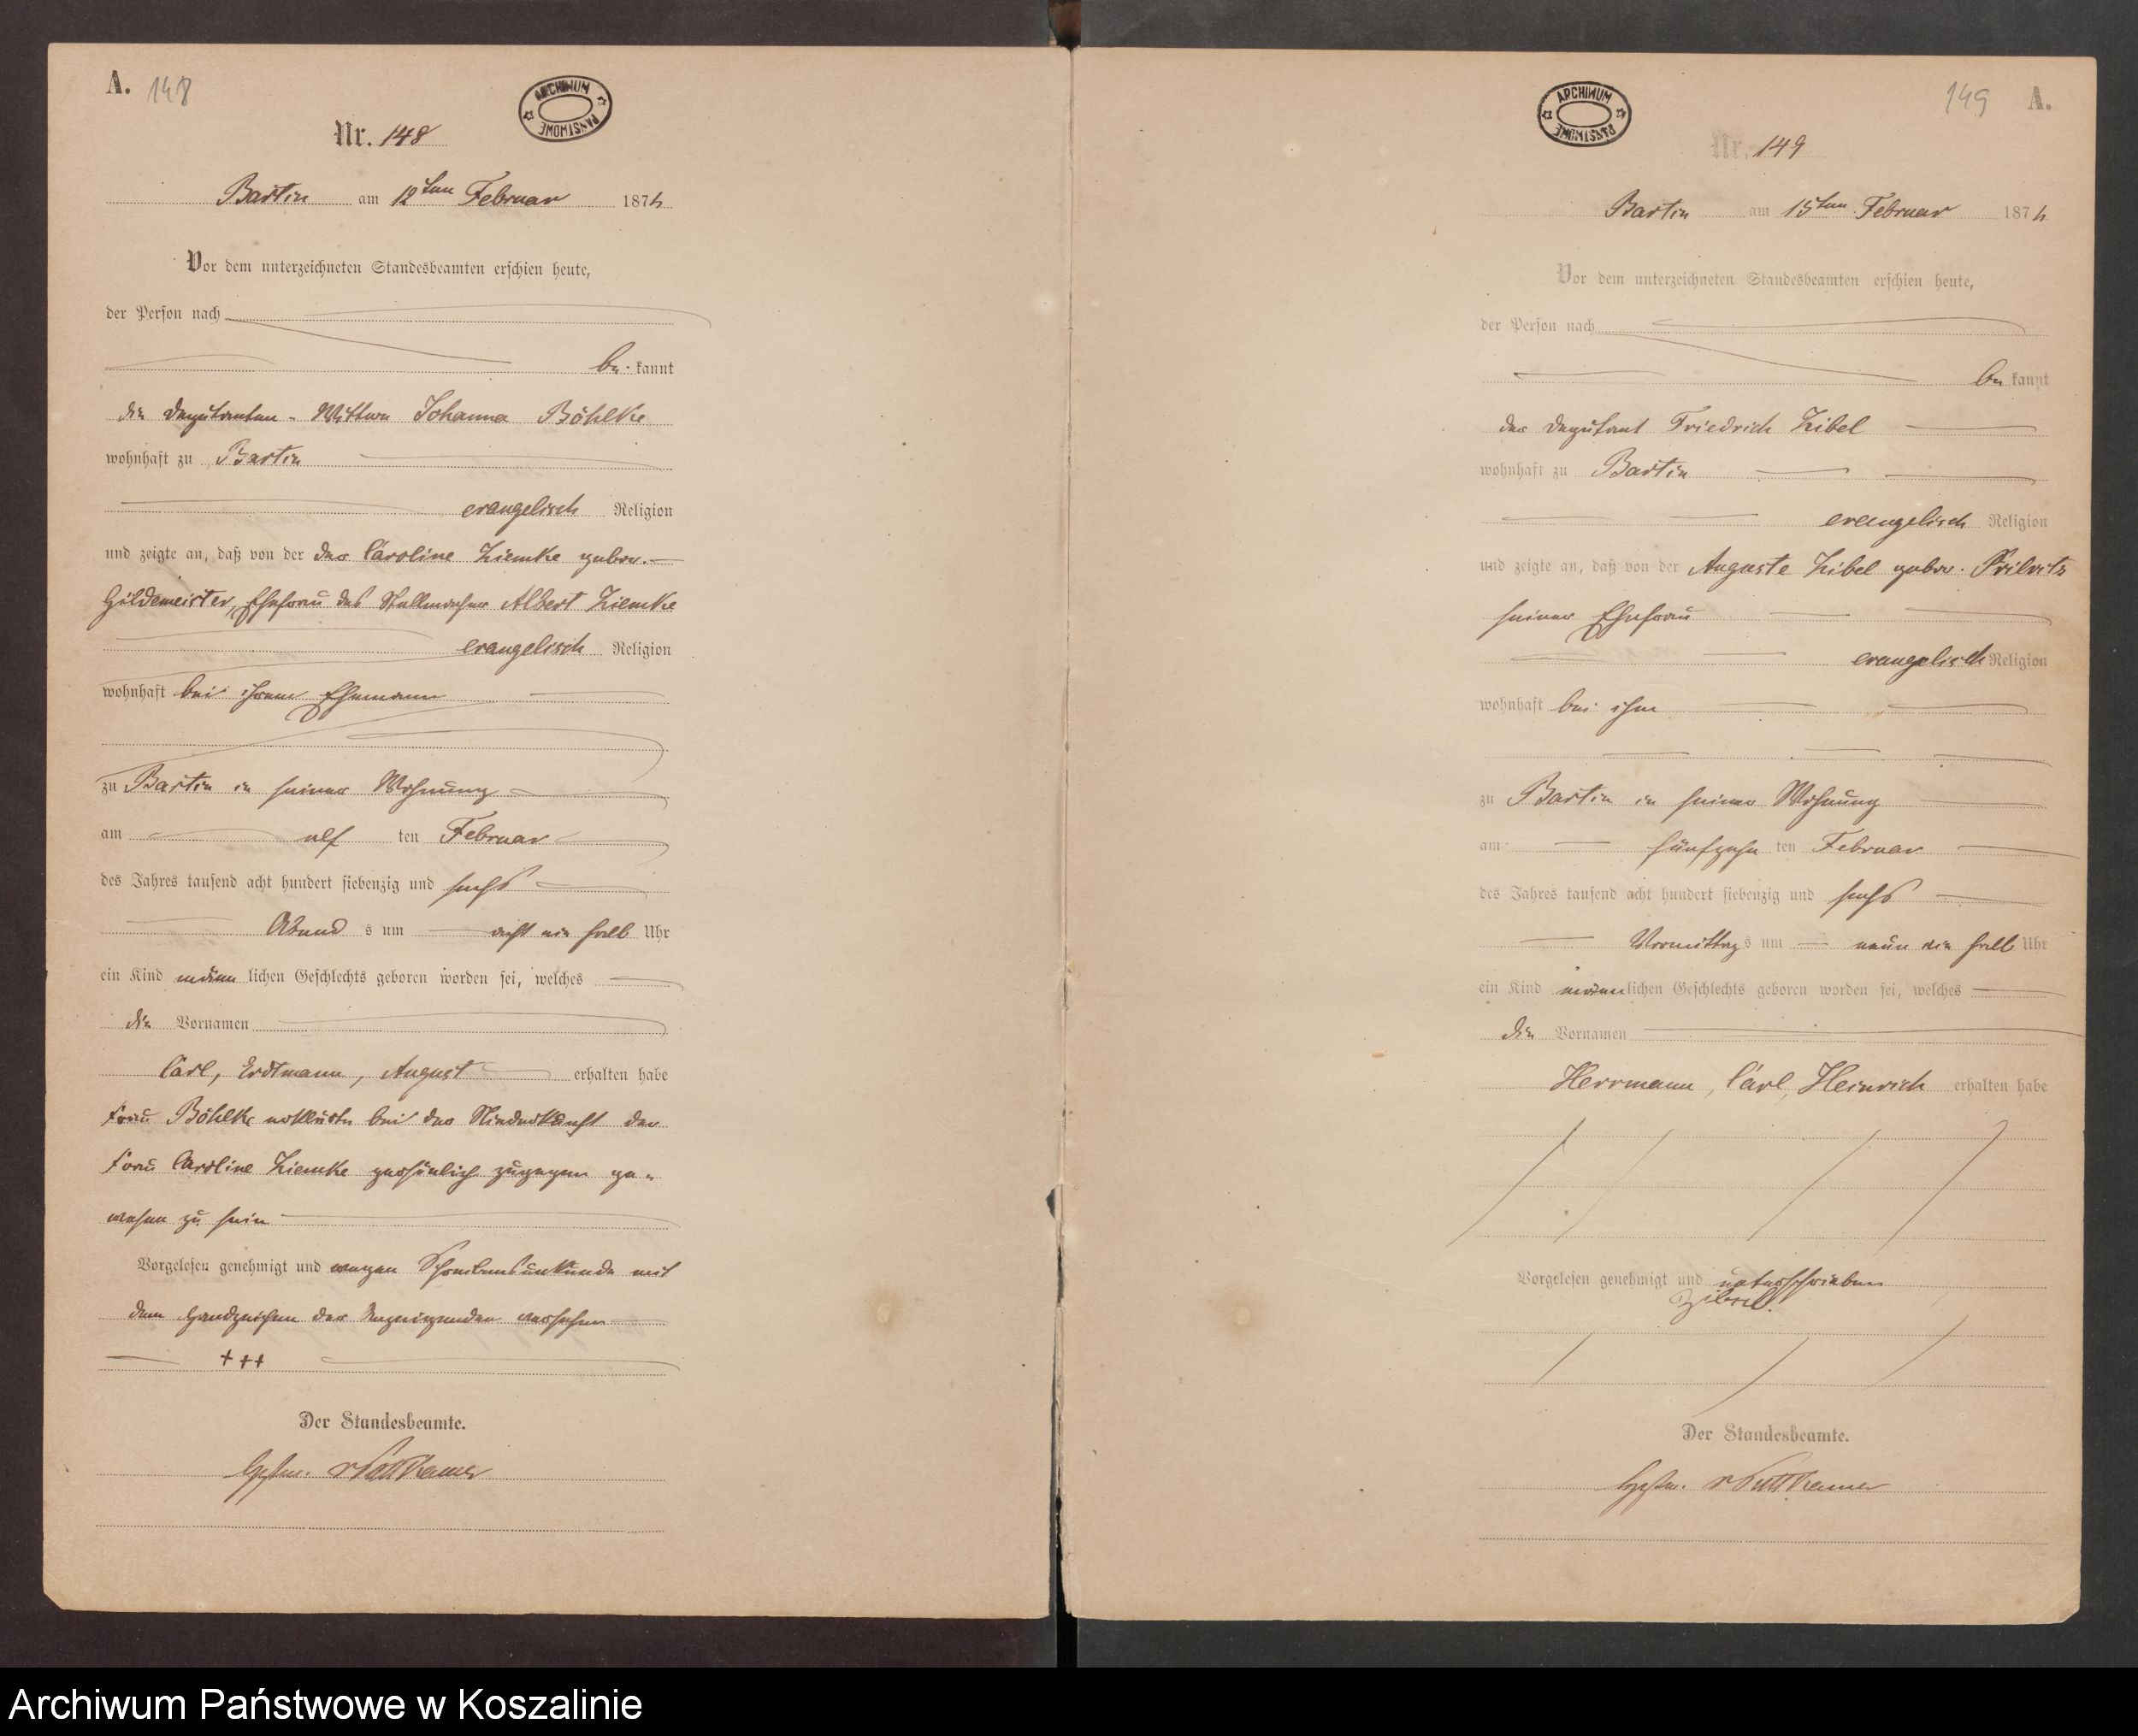 A. 148
ARCHIWUM PAŃSTWOWE
Nr. 148
Bartin am 12ten Februar 1876
Vor dem unterzeichneten Standesbeamten erschien heute,
der Person nach
be kannt
die Deputanten-Wittwe Johanna Böhlke
wohnhaft zu Bartin
evangelisch Religion
und zeigte an, daß von der der Caroline Ziemke gebor.
Gildemeister, Ehefrau des Stellmacher Albert Ziemke
evangelisch Religion
wohnhaft bei ihrem Ehemann
zu Bartin in seiner Wohnung
am elf ten Februar
des Jahres tausend acht hundert siebenzig und sechs
Abend s um acht ein halb Uhr
ein Kind männ lichen Geschlechts geboren worden sei, welches
die Vornamen
Carl, Erdtmann, August erhalten habe
Frau Böhlke erklärte bei der Niederkunft der
Frau Caroline Ziemke persönlich zugegen ge-
wesen zu sein
Vorgelesen genehmigt und wegen Schreibensunkunde mit
dem Handzeichen der Anzeigenden versehen
+++
Der Standesbeamte.
v Puttkamer
149 A.
ARCHIWUM PAŃSTWOWE
Nr. 149
Bartin am 15ten Februar 1876
Vor dem unterzeichneten Standesbeamten erschien heute,
der Person nach
be kannt
der Deputant Friedrich Zibel
wohnhaft zu Bartin
evangelisch Religion
und zeigte an, daß von der Auguste Zibel gebor.
seiner Ehefrau
evangelisch Religion
wohnhaft bei ihm
zu Bartin in seiner Wohnung
am fünfzehn ten Februar
des Jahres tausend acht hundert siebenzig und sechs
Vormittag s um neun ein halb Uhr
ein Kind männlichen Geschlechts geboren worden sei, welches
die Vornamen
Herrmann, Carl, Heinrich erhalten habe
Vorgelesen genehmigt und unterschrieben
Der Standesbeamte.
v Puttkamer
Archiwum Państwowe w Koszalinie